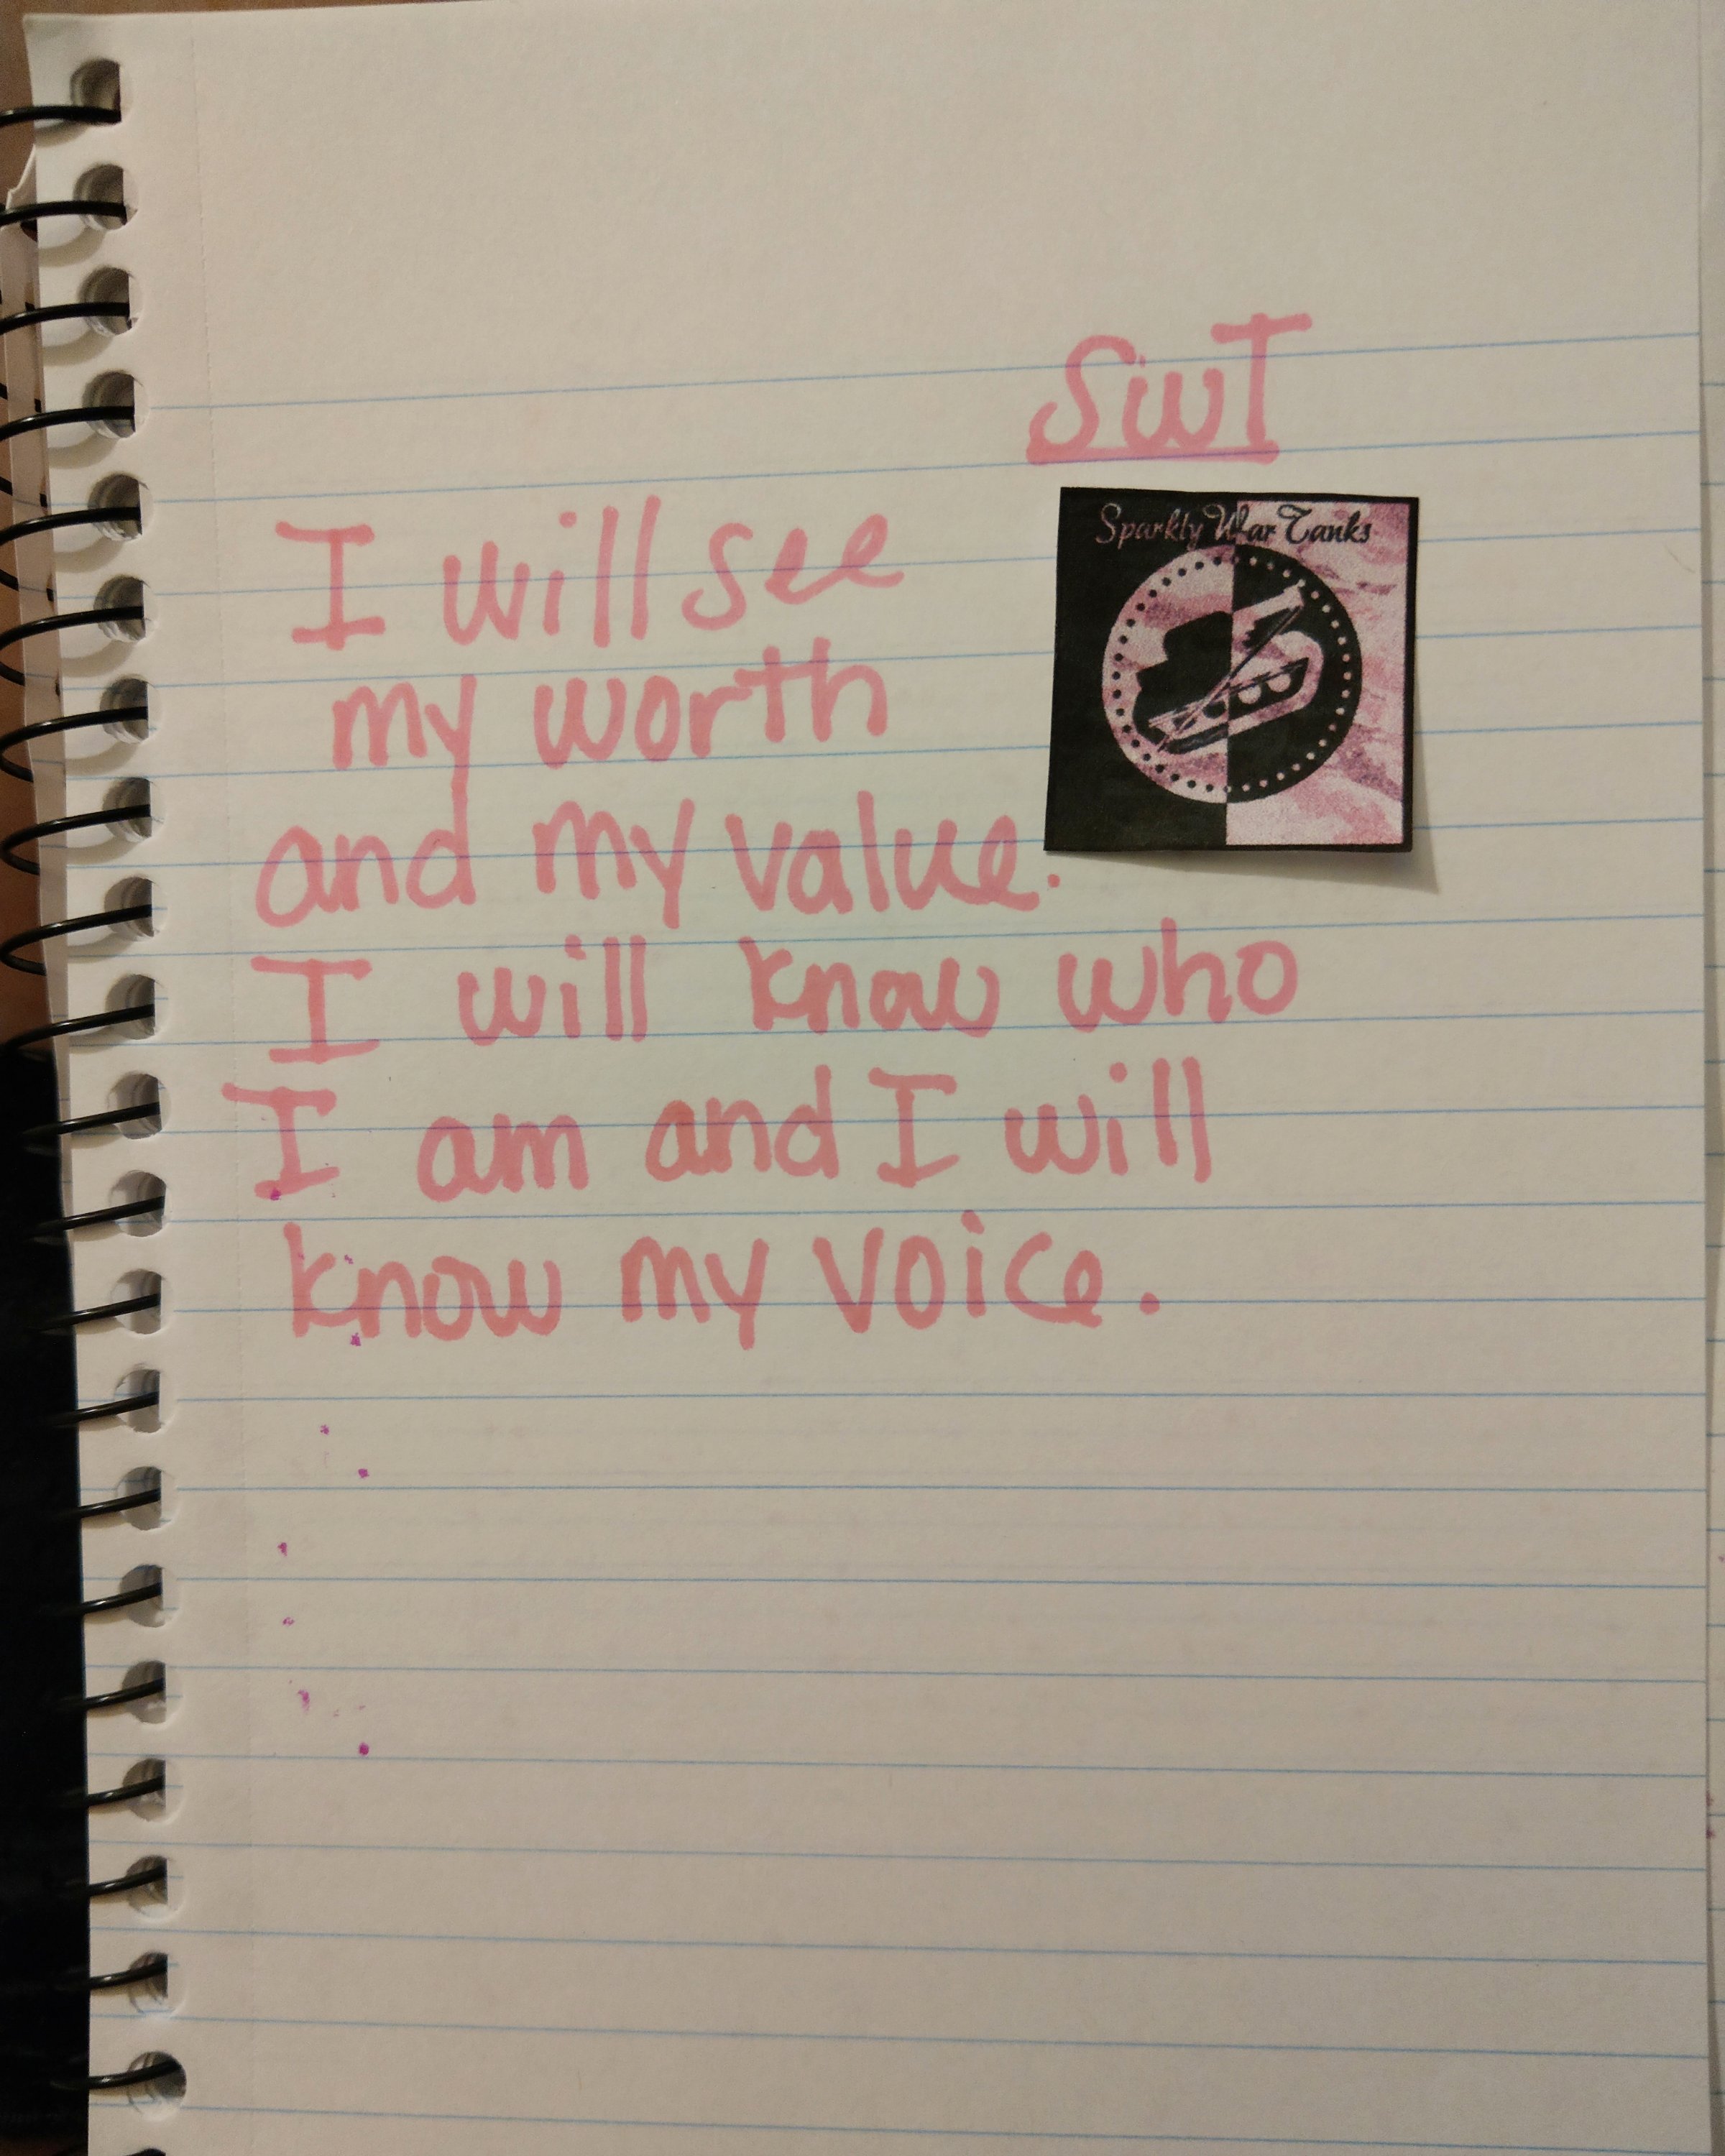 SWT
Sparkly War Tanks
I will see
my worth
and my value.
I will know who
I am and I will
know my voice.